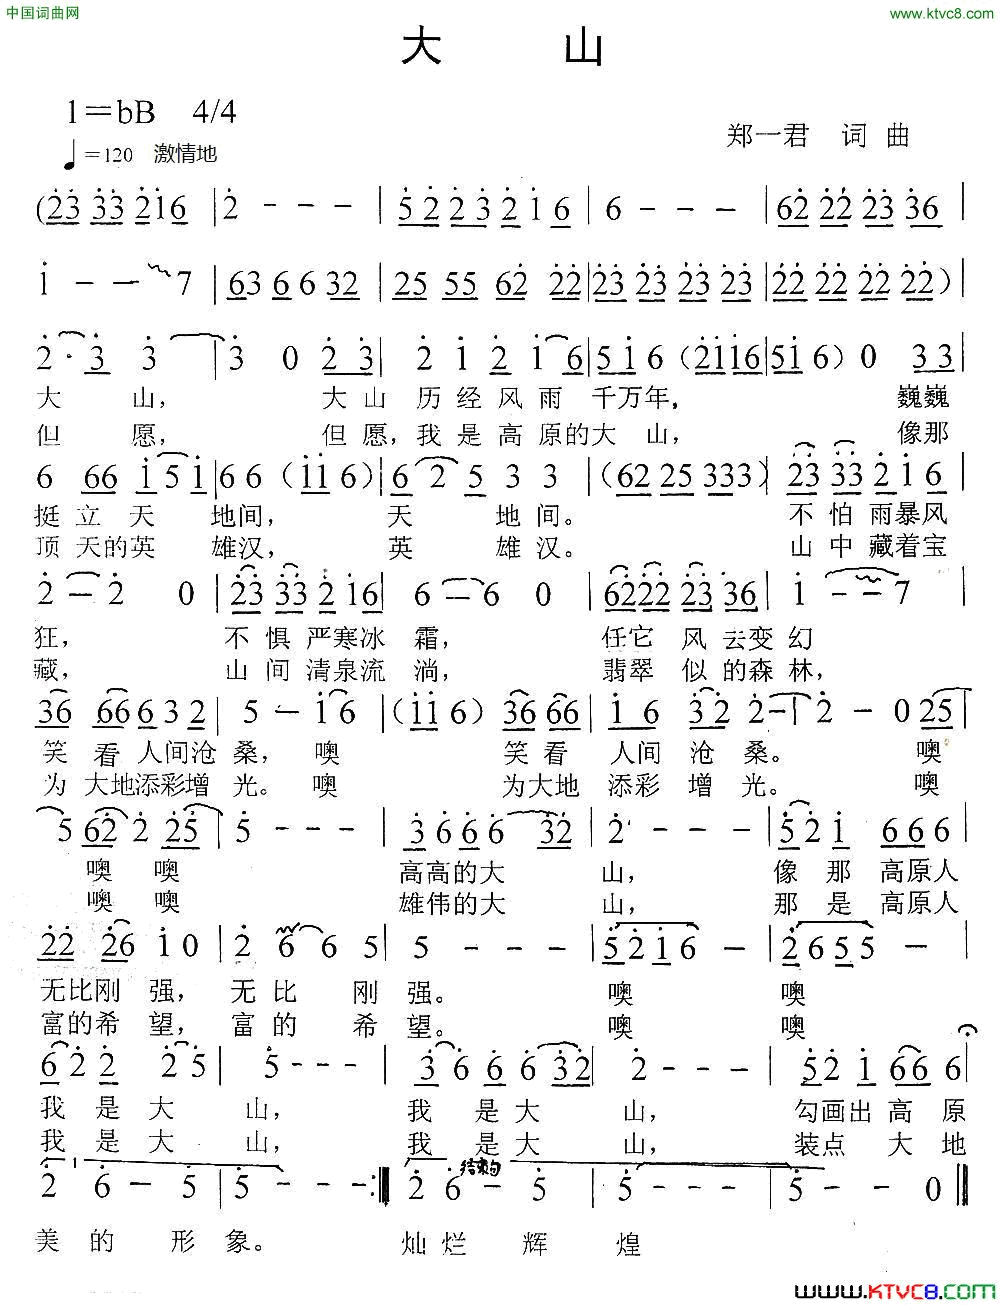 中国词曲网
www.ktvc8.com
大 山
1=bB 4/4
♩=120 激情地
郑一君 词 曲
(23 33 216 | 2 - - - | 5 2 2 3 2 1 6 | 6 - - - | 62 22 23 36 |
1 - - 7 | 63 6 6 32 | 25 55 62 22 | 23 23 23 23 | 22 22 22 22) |
2 · 3 3 | 3 0 2 3 | 2 1 2 1 6 | 5 1 6 (2116 | 51 6) 0 3 3 |
大 山, 大 山 历 经 风 雨 千万年, 巍巍
但 愿, 但 愿, 我 是 高 原的大 山, 像那
6 66 1 5 1 | 6 6 (11 6) | 6 2 5 3 3 | (62 25 333) | 23 33 2 1 6 |
挺 立 天 地间, 天 地 间。 不 怕 雨暴风
顶 天的英 雄汉, 英 雄 汉。 山 中 藏着宝
2 - 2 0 | 23 33 2 16 | 6 - 6 0 | 6222 23 36 | 1 - - 7 |
狂, 不 惧 严寒冰 霜, 任它 风 云变 幻
藏, 山 间 清泉流 淌, 翡翠 似 的森 林,
36 66 6 3 2 | 5 - 1 6 | (11 6) 36 66 | 1 6 32 2 - | 2 - 0 25 |
笑 看 人间沧 桑, 噢 笑 看 人间 沧 桑。 噢
为 大地添彩增 光。 噢 为大地 添彩 增 光。 噢
5 62 2 25 | 5 - - - | 3 6 6 6 32 | 2 - - - | 5 2 1 6 6 6 |
噢 噢 高高的大 山, 像 那 高原人
噢 噢 雄伟的大 山, 那 是 高原人
22 26 1 0 | 2 6 6 5 | 5 - - - | 5 2 1 6 - | 2 6 5 5 - |
无比刚 强, 无 比 刚 强。 噢 噢
富的希 望, 富 的 希 望。 噢 噢
6 2 2 2 5 | 5 - - - | 3 6 6 6 32 | 2 - - - | 5 2 1 66 6 |
我 是 大 山, 我 是 大 山, 勾画出 高 原
我 是 大 山, 我 是 大 山, 装点 大 地
2 6 - 5 | 5 - - - :‖ 2 6 结束句 - 5 | 5 - - - | 5 - - 0 ‖
美 的 形 象。 灿 烂 辉 煌
www.KTVC8.com